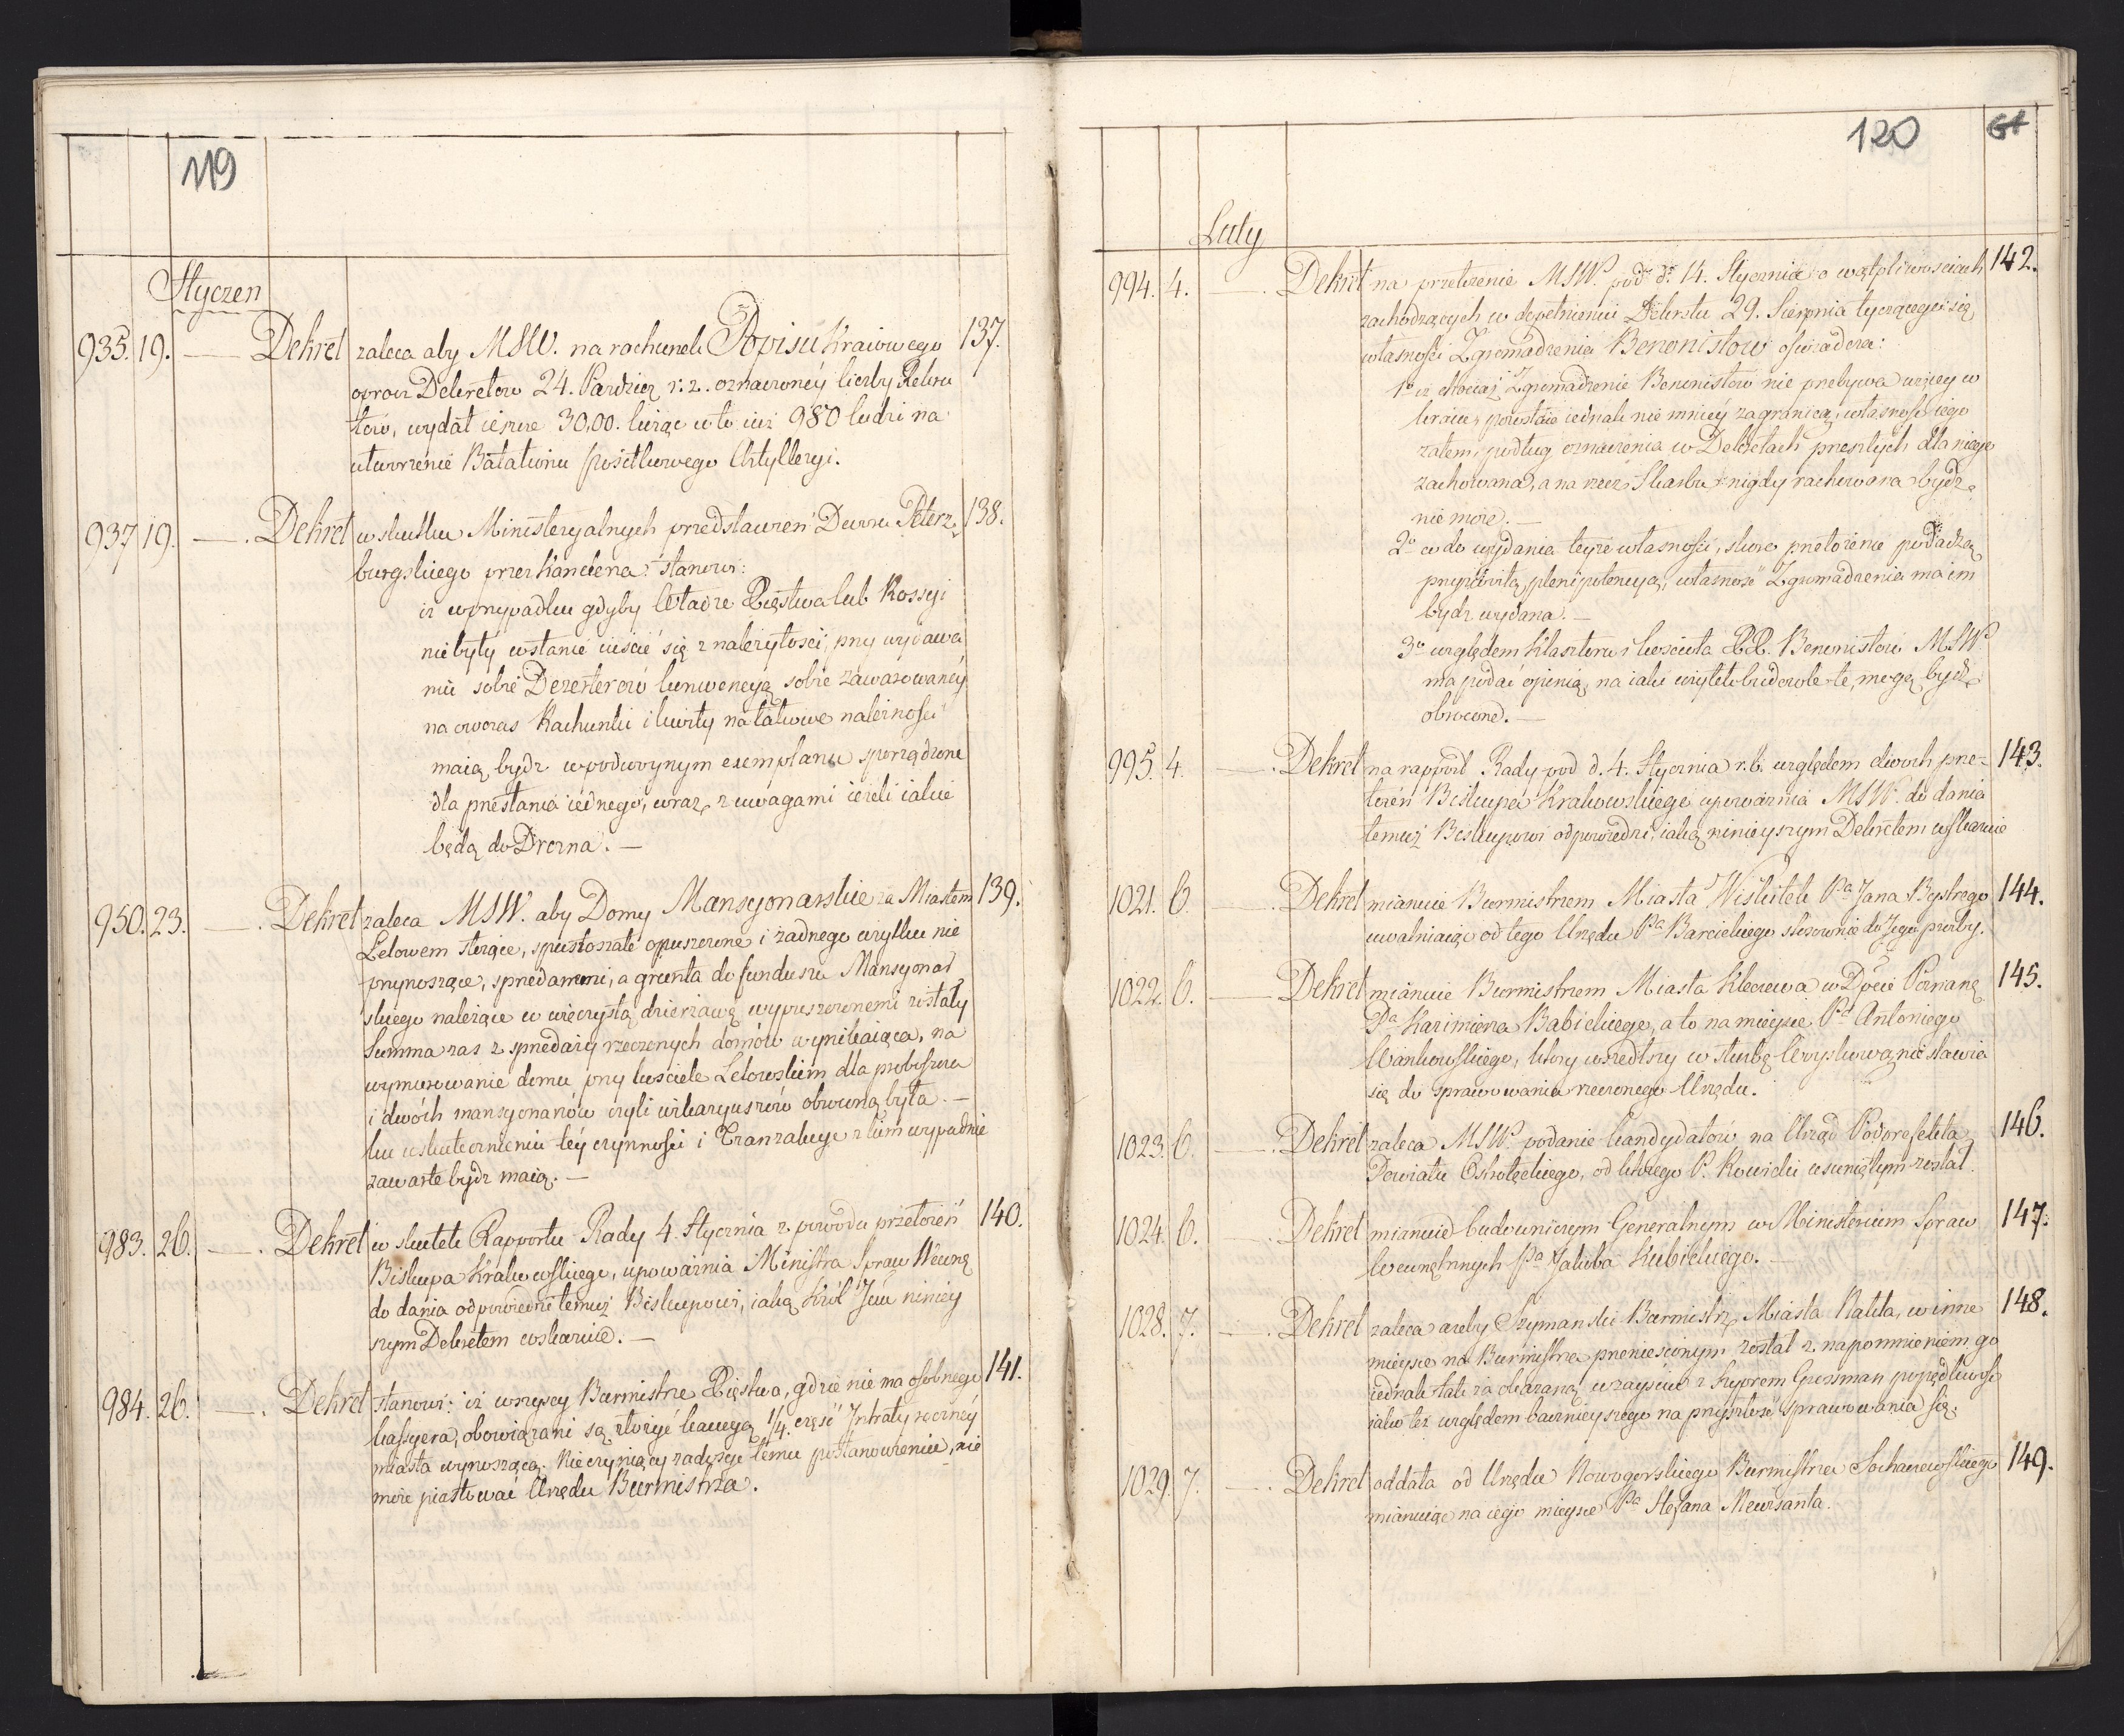 119
Styczen
935. 19. — Dekret zaleca aby MSW. na rachunek Popisu Kraiowego 137.
oprocz Dekretow 24. Pazdzier. r: z. oznaczoney liczby Rekru
tow, wydał ieszcze 30,00. licząc w to iuż 980 ludzi na
utworzenie Batalionu posiłkowego Artylleryi.
937. 19. — . Dekret w skutku Ministeryalnych przedstawień Dworu Peterz 138.
burgskiego przez Kanclerza: stanowi:
iż w przypadku gdyby Władze Xięstwa lub Rossyi
nie były w stanie uiścić się z należytości, przy wydawa
niu sobie Dezerterow konwencyą sobie zawarowanéy
na owczas Rachunki i kwity na takowe należności
maią bydz w podwoynym exemplarzu sporządzone
dla przesłania iednego, wraz z uwagami ieżeli iakie
będą do Drezna. —
950. 23. — . Dekret zaleca MSW. aby Domy Mansyonarskie za Miastem 139.
Lelowem stoiące, spustoszałe opuszczone i żadnego użytku nie
przynoszące, sprzedanemi, a grunta do funduszu Mansyonar
skiego należące w wieczystą dzierżawę wypuszczonemi zostały
Summa zas z sprzedaży rzeczonych domów wynikaiąca, na
wymurowanie domu przy kościele Lelowskim dla proboszcza
i dwóch mansyonarzów czyli wikaryuszów obroconą była. —
ku uskutecznieniu téy czynności i Tranzakcye z kim wypadnie
zawarte bydz maią. —
983. 26. — . Dekret w skutek Rapportu Rady 4. Stycznia z powodu przełożeń 140.
Biskupa Krakowskiego, upoważnia Ministra Spraw Wewnę
do dania odpowiedzi temuż Biskupowi, iaką Król Jmć niniey
szym Dekretem wskazuie. —
984. 26. — . Dekret stanowi: iż wszyscy Burmistrze Xięstwa, gdzie nie ma osobnego 141.
kassyera, obowiązani są złożyć kaucyą 1/4. część Intraty roczney
miasta wynoszącą. Nieczyniący zadosyć temu postanowieniu, nie
może piastować Urzędu Burmistrza.
120 61
Luty
994. 4. — . Dekret na przełożenie MSW. pod d. 14. Stycznia o wątpliwosciach 142.
zachodzących w dopełnieniu Dekretu 29. Sierpnia tyczącego się
własności Zgromadzenia Benonistow oświadcza:
1o iż chociaż Zgromadzenie Benonistow nie przebywa więcey w
kraiu, powstaie iednak nie mniey zagranicą, własność iego
zatem, podług oznaczenia w Dekretach przeszłych dla niego
zachowana, a na rzecz Skarbu nigdy rachowana bydz
nie może. —
2o co do wydania teyże własności, skoro przełożeni podadzą
przyzwoitą plenipotencyą, własność Zgromadzenia ma im
bydz wydana. —
3o względem Klasztoru i kościoła XX. Benonistow MSW.
ma podać opinią, na iaki użytek budowle te, mogą bydz
obrocone. —
995. 4. — . Dekret na rapport Rady pod d. 4. Stycznia r. b. względem dwoch prze- 143.
łożeń Biskupa Krakowskiego upoważnia MSW. do dania
temuż Biskupowi odpowiedzi, iaką ninieyszym Dekretem wskazuie
1021. 6. — . Dekret mianuie Burmistrzem Miasta Wiskitek Pa Jana Bystrego 144.
uwalniaiąc od tego Urzędu Pa Barcickiego stosownie do Jego proźby.
1022. 6. — Dekret mianuie Burmistrzem Miasta Kleczewa w Dpcie Poznanę 145.
Pa Kazimierza Babickiego, a to na mieysce Pa Antoniego
Wańkowskiego, ktory wszedłszy w służbę Woyskową nie stawia
się do sprawowania rzeczonego Urzędu.
1023. 6. — . Dekret zaleca MSW. podanie kandydatow na Urząd Podprefekta 146.
Powiatu Ostrołęckiego, od ktorego P. Rowicki usuniętym został.
1024. 6. — . Dekret mianuie budowniczym Generalnym w Ministerium Spraw 147.
Wewnętrznych Pa Jakuba Kubickiego. —
1028. 7. — . Dekret zaleca ażeby Szymanski Burmistrz Miasta Kutta, w inne 148.
mieysce na Burmistrza przeniesionym został z napomnieniem go
iednak tak za okazaną w zayściu z Huprem Gussman popędliwość
iako też względem bacznieyszego na przyszłość sprawowania się.
1029. 7. — . Dekret oddala od Urzędu Nowogorskiego Burmistrza Sochaczewskiego 149.
mianuiąc na iego mieysce Pa Stefana Mewisanta.